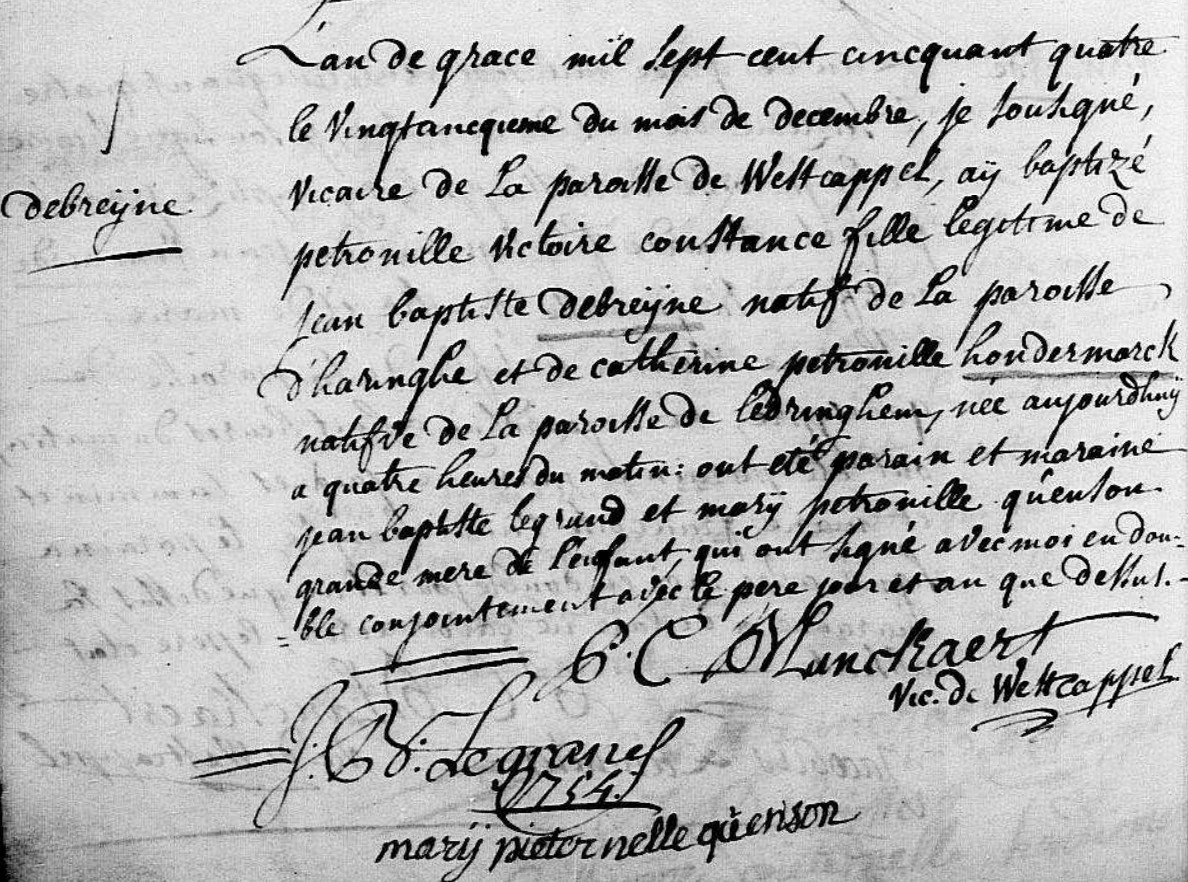 L'an de grace mil sept cent cincquant quatre
le vingtancqueme du mois de decembre, je sousigné,
debreÿne
vicaire de La paroisse de Westcappel, aÿ baptizé
petronille victoire constance fille legitime de
jean baptiste debreijne natif de La paroisse
d'haringhe et de catherine petronille hondermarck
natifve de La paroisse de ledringhem, née aujourdhuÿ
a quatre heures du matin: ont eté parain et maraine
jean baptiste legrand et marÿ petronille quenson
grande mere de l'enfant, qui ont signé avec moi en dou-
=ble conjointement avec le pere jour et an que dessus.-
P. C. Blanckaert
vic. de Westcappel
J. B. Legrand
1754
marÿ pieternelle quenson